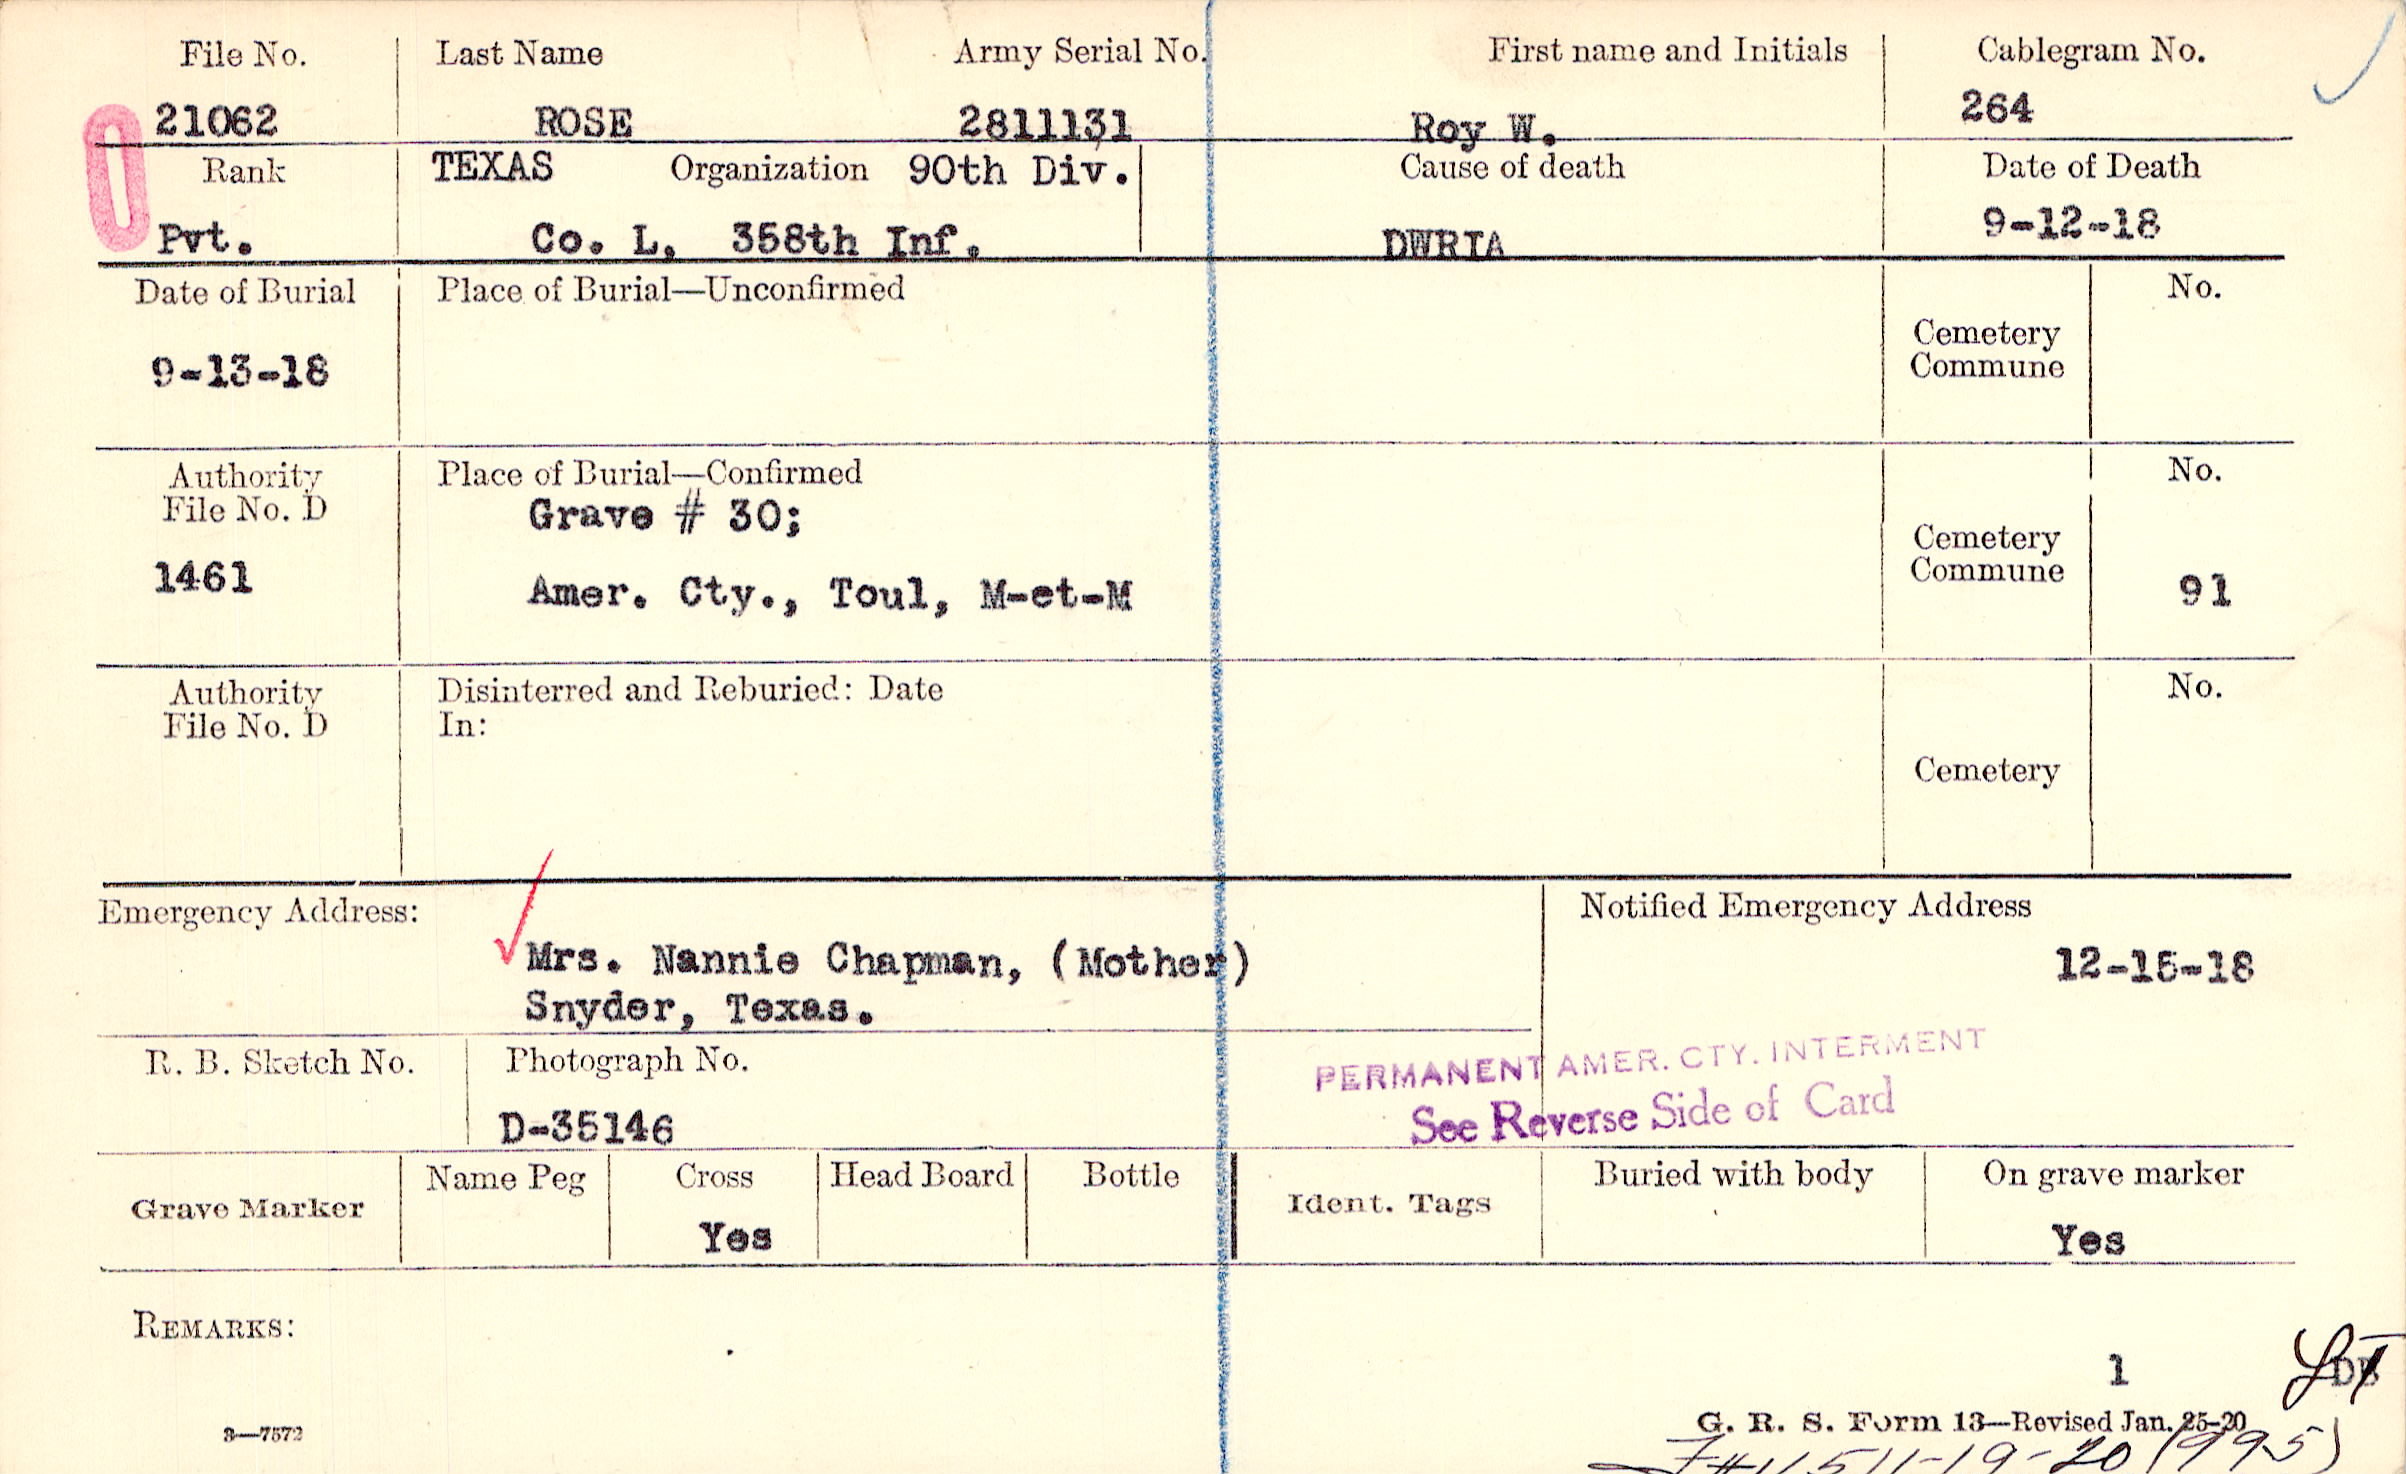 File No. Last Name Army Serial No. First name and Initials Cablegram No.
21062 ROSE 2811131 Roy W. 264
Rank TEXAS Organization 90th Div. Cause of death Date of Death
Pvt. Co. L, 358th Inf. DWRIA 9-12-18
Date of Burial Place of Burial—Unconfirmed No.
Cemetery
Commune
9-13-18
Authority Place of Burial—Confirmed No.
File No. D Grave # 30;
Cemetery
Commune
1461 Amer. Cty., Toul, M-et-M 91
Authority Disinterred and Reburied: Date No.
File No. D In:
Cemetery
Emergency Address: Notified Emergency Address
Mrs. Nannie Chapman, (Mother) 12-15-18
Snyder, Texas.
R. B. Sketch No. Photograph No.
PERMANENT AMER. CTY. INTERMENT
D-35146 See Reverse Side of Card
Grave Marker Name Peg Cross Head Board Bottle Ident. Tags Buried with body On grave marker
Yes Yes
REMARKS:
1
3—7572 G. R. S. Form 13—Revised Jan. 25-20